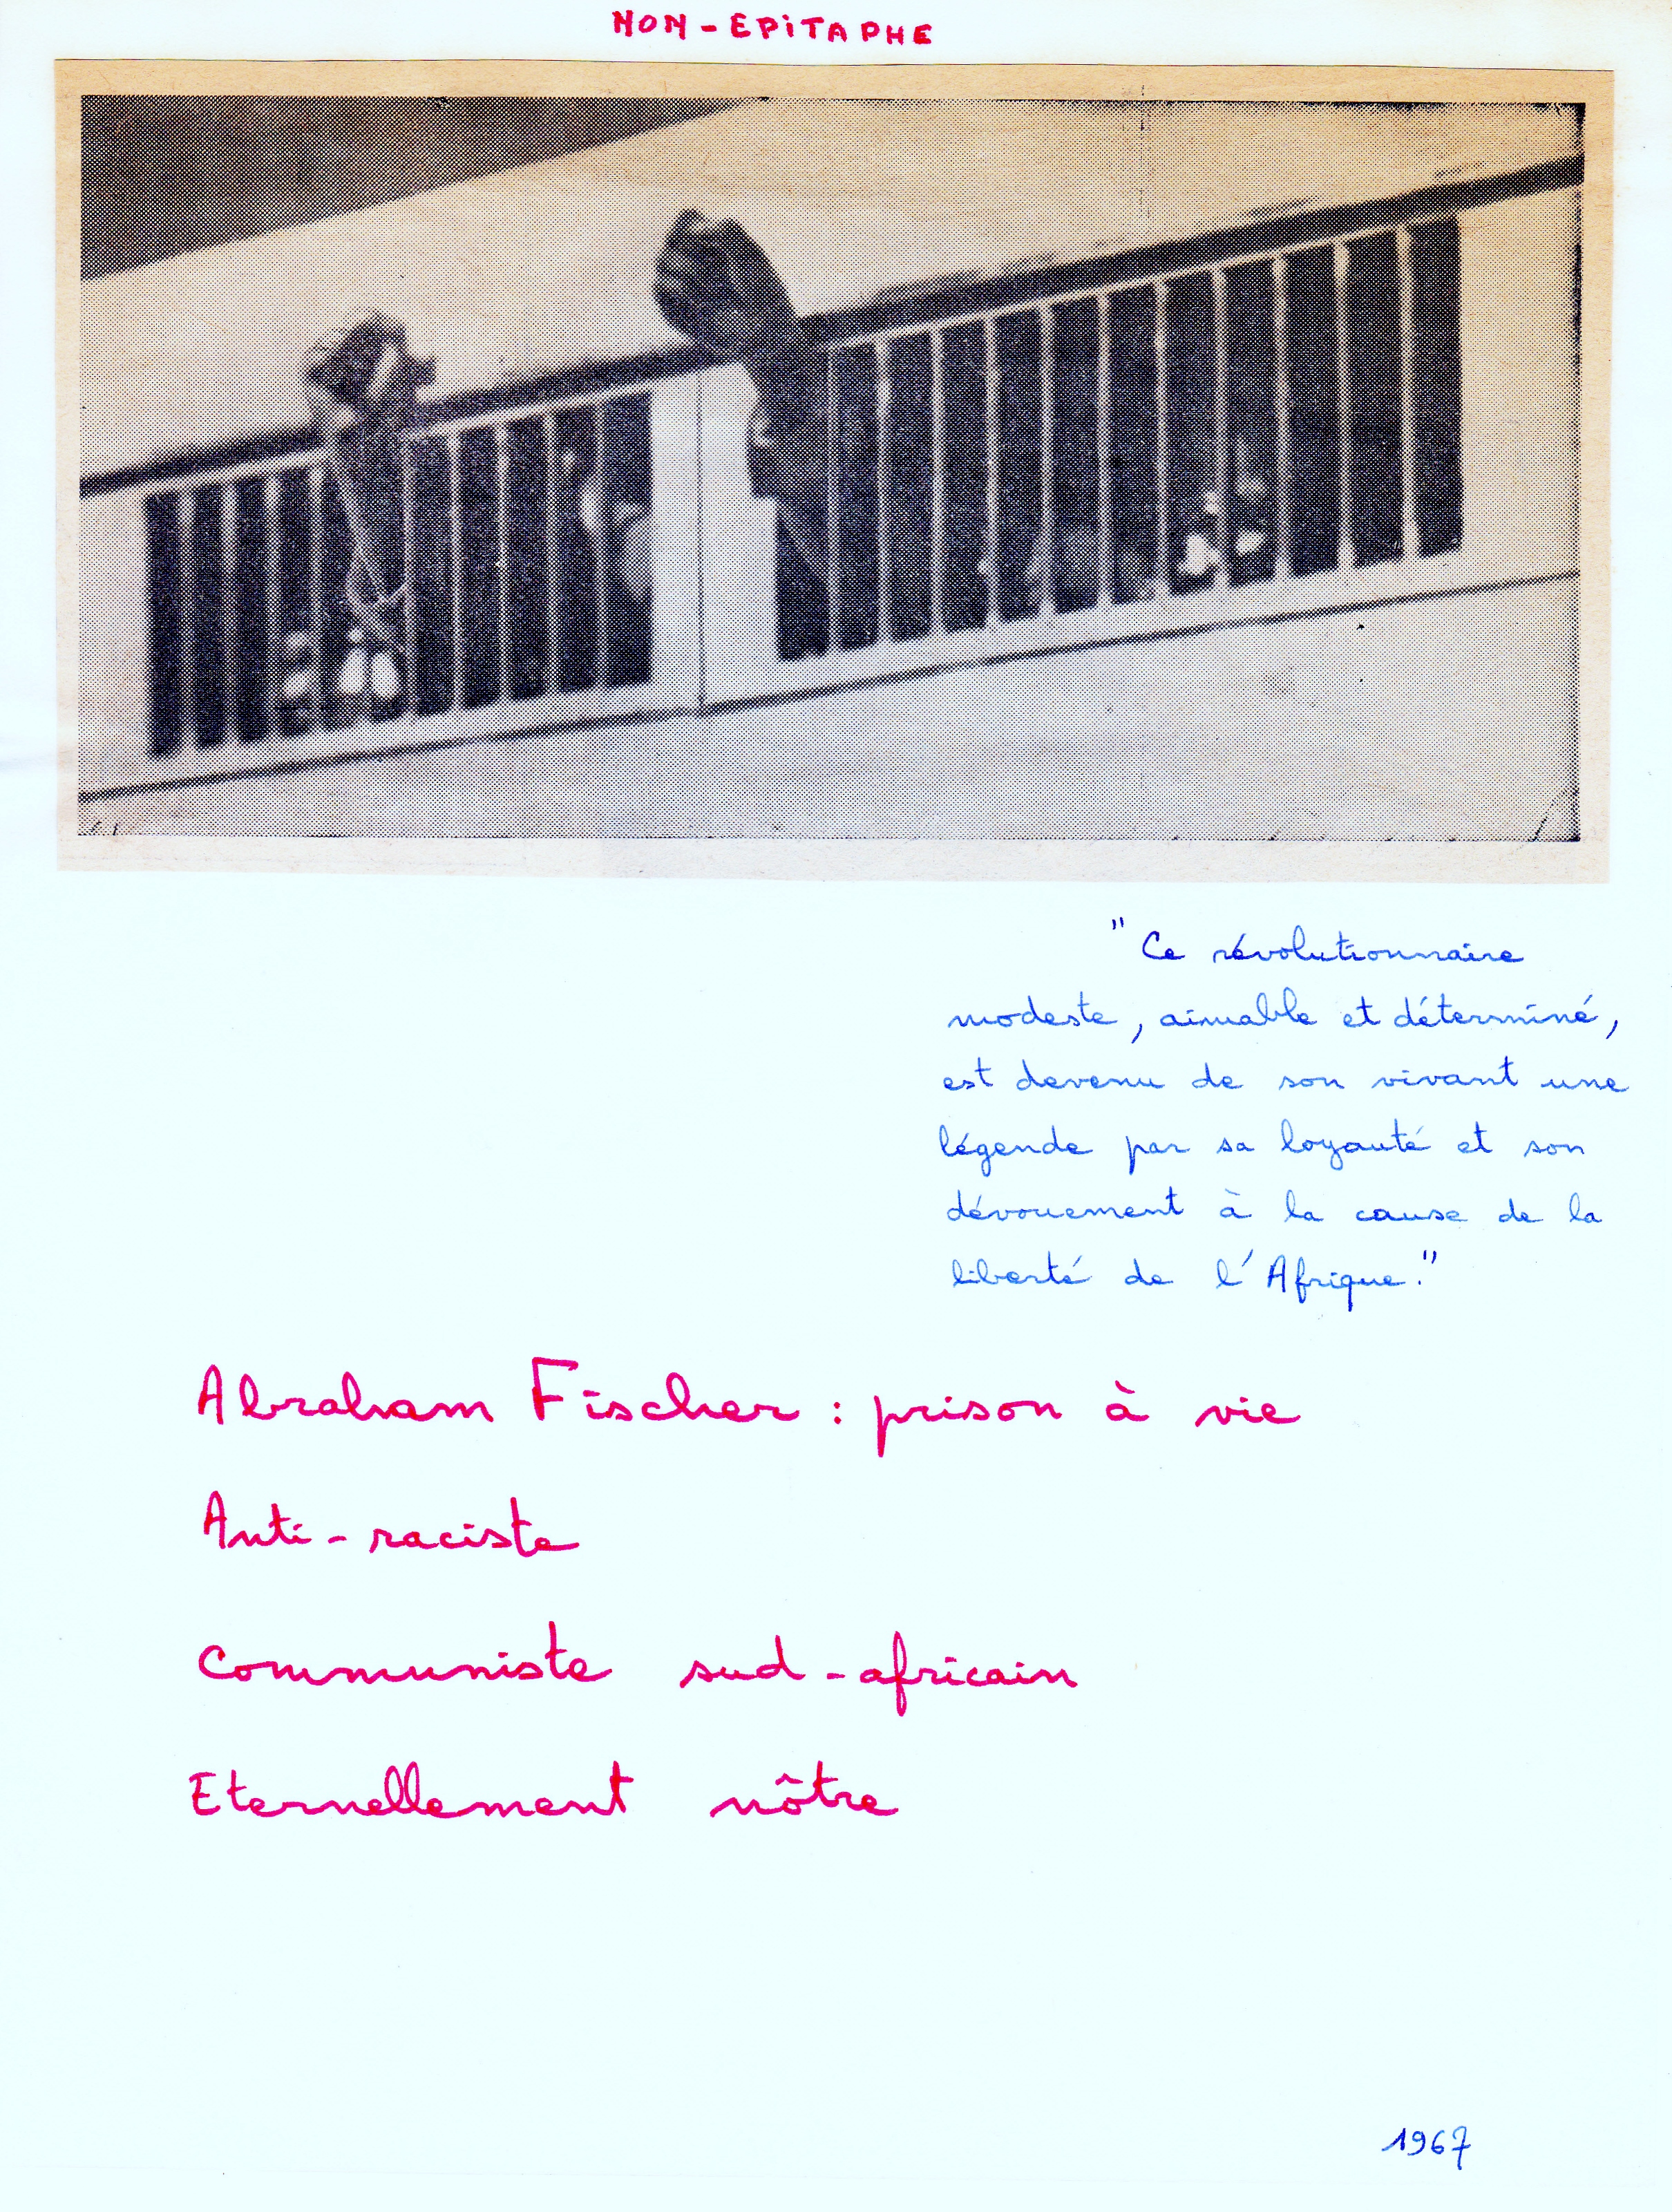 NON-EPiTAPHE
"Ce révolutionnaire
modeste, aimable et déterminé,
est devenu de son vivant une
légende par sa loyauté et son
dévouement à la cause de la
liberté de l'Afrique."
Abraham Fischer : prison à vie
Anti-raciste
Communiste sud-africain
Eternellement nôtre
1967